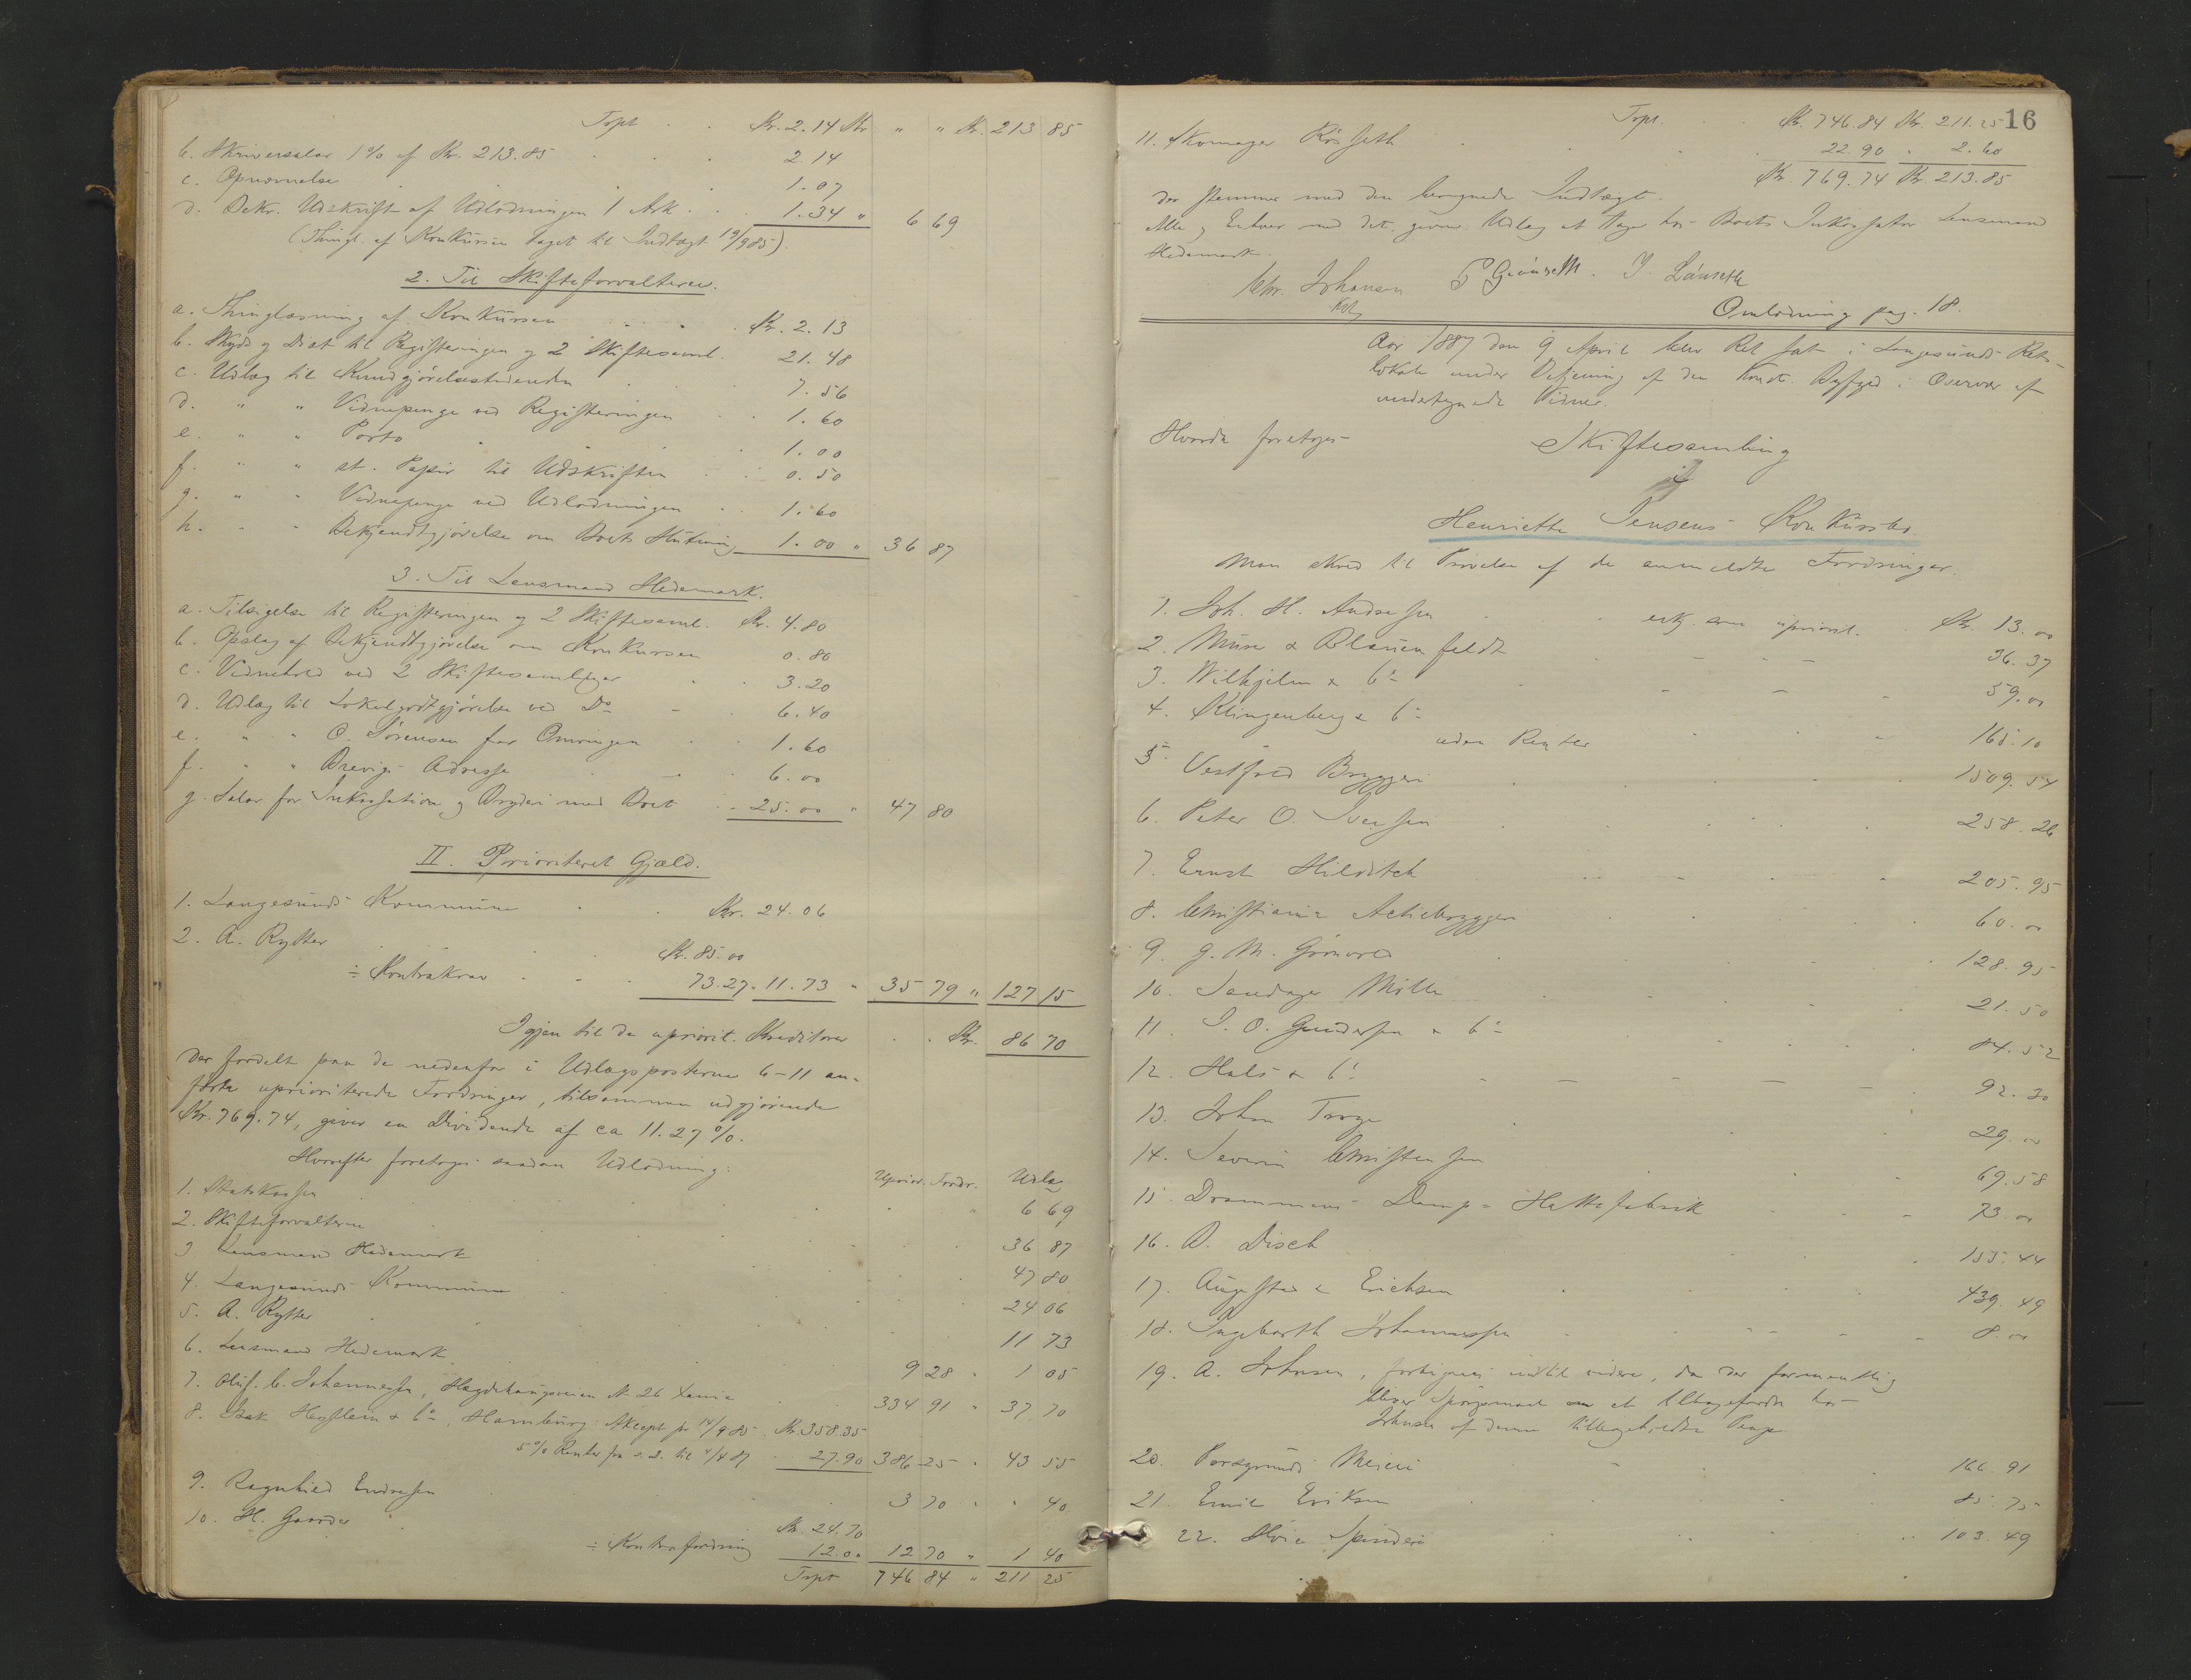 Tspt . . Kr. 2.14 Kr. " " Kr. 213 85
b. Skriversalær 1% af Kr. 213.85 . . . 2.14
c. Opnævnelse . . . 1.07
d. Bekr. Udskrift af Udlodningen 1 Ark . . . 1.34 " 6 69
(Thingl. af Konkursen taget til Indtægt 19/9 85).
2. Til Skifteforvalteren.
a. Thinglæsning af Konkursen . . . Kr. 2.13
b. Skyds og Diæt til Registeringen og 2 Skiftesaml. 21.48
c. Udlæg til Kundgjørelsestidende 7.56
d. " " Vidnepenge ved Registeringen . . 1.60
e. " " Porto . . . 1.00
f. " " st. Papir til Udskriften . . 0.50
g. " " Vidnepenge ved Udlodningen . . 1.60
h. " " Bekjendtgjørelse om Boets Slutning 1.00 " 36 87
3. Til Lensmand Hedemark.
a. Tilsigelse til Registeringen og 2 Skiftesaml. Kr. 4.80
b. Opslag af Bekjendtgjørelse om Konkursen 0.80
c. Vidnehold ved 2 Skiftesamlinger . . 3.20
d. Udlæg til Lokalgodtgjørelse ved Do . . 6.40
e. " " O. Sørensen for . . 1.60
f. " " Brevigs Adresse . . 6.00
g. Salær for Inkassation og Bryderi med Boet . . 25.00 " 47 80
II. Prioriteret Gjæld.
1. Langesunds Kommune . . Kr. 24.06
2. A. Rytter . . Kr. 85.00
÷ Kontrakrav . . . 73.27 " 11.73 " 35 79 " 127 15
Igjen til de upriorit. Kreditorer . . Kr. 86 70
der fordelt paa de nedenfor i Udlægsposterne 6-11 an-
førte uprioriterede Fordringer, tilsammen udgjørende
Kr. 769.74, giver en Dividende af ca 11.27%.
Hvorefter foretoges saadan Udlodning:
Uprior. Fordr. Udlæg
1. Statskassen . . . 6 69
2. Skifteforvalteren . . . 36 87
3. Lensmand Hedemark . . . 47 80
4. Langesunds Kommune . . . 24 06
5. A. Rytter . . . 11 73
6. Lensmand Hedemark . . . 9 28 " 1 05
7. Oluf C. Johannessen, Hægdehaugsveien No 26 Xania 334 91 " 37 70
8. Isak & Co, Hamburg: Akcept pr 14/9 85 . Kr. 358.35
5% Renter fra s. d. til 4/4 87 . 27.90 386 25 " 43 55
9. Ragnhild Endresen . . . 3 70 " " 40
10. H. Gaarder . . . Kr. 24.70
÷ Kontrafordring 12.00 12 70 " 1 40
Tspt 746 84 " 211 25
16
Tspt. . . Kr. 746.84 Kr. 211.25
11. Skomager Røsseth . . . 22.90 " 2.60
Kr. 769.74 Kr. 213.85
der stemmer med den beregnede Indtægt.
Alle og Enhver med det givne Udlæg at tage hos Boets Inkassator Lensmand
Hedemark.
Chr. Johansen P Grønseth. J. Lønseth
Kst
Omlodning pag. 18.
Aar 1887 den 9 April blev Ret sat i Langesunds Rets-
lokale under Betjening af den Konst. Byfoged i Overvær af
undertegnede Vidner.
Hvorda foretoges
Skiftesamling
i
Henriette Jensens Konkursbo.
Man skred til Prøvelse af de anmeldte Fordringer.
1. Joh. H. Andresen . . . erkj. som uprioril. . Kr. 13.00
2. Muus & Blauenfeldt . . . 36.37
3. Wilhjelm & Co . . . 59.00
4. Klingenberg & Co uden Renter . . . 168.10
5. Vestfold Bryggeri . . . 1509.54
6. Peter O. Iversen . . . 258.26
7. Ernst Hilditch . . . 205.95
8. Christiania Actiebryggeri . . . 60.00
9. G. M. Grønvold . . . 128.95
10. Sandager Mølle . . . 21.50
11. J. O. Gundersen & Co . . . 84.52
12. Hals & Co . . . 92.30
13. Johan . . . 29.00
14. Severin Christensen . . . 69.58
15. Drammens Damp-Hattefabrik . . . 73.00
16. A. Disch . . . 155.44
17. Augestad & Erichsen . . . 439.49
18. Ingebarth Johannessen . . . 8.00
19. A. Johnsen, indtil videre, da der formentlig
bliver Spørgsmaal om at tilbagefordre hos
Johnsen af denne tilbageholdte Penge
20. Porsgrunds Meieri . . . 166.91
21. Emil Eriksen . . . 85.75
22. Høie Spinderi . . . 103.49